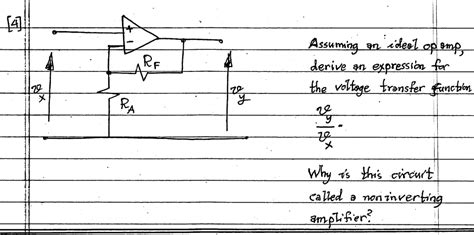 [4]
+
-
R_F
R_A
v_x
v_y
Assuming an ideal op amp,
derive an expression for
the voltage transfer function
v_y
v_x
Why is this circuit
called a noninverting
amplifier?